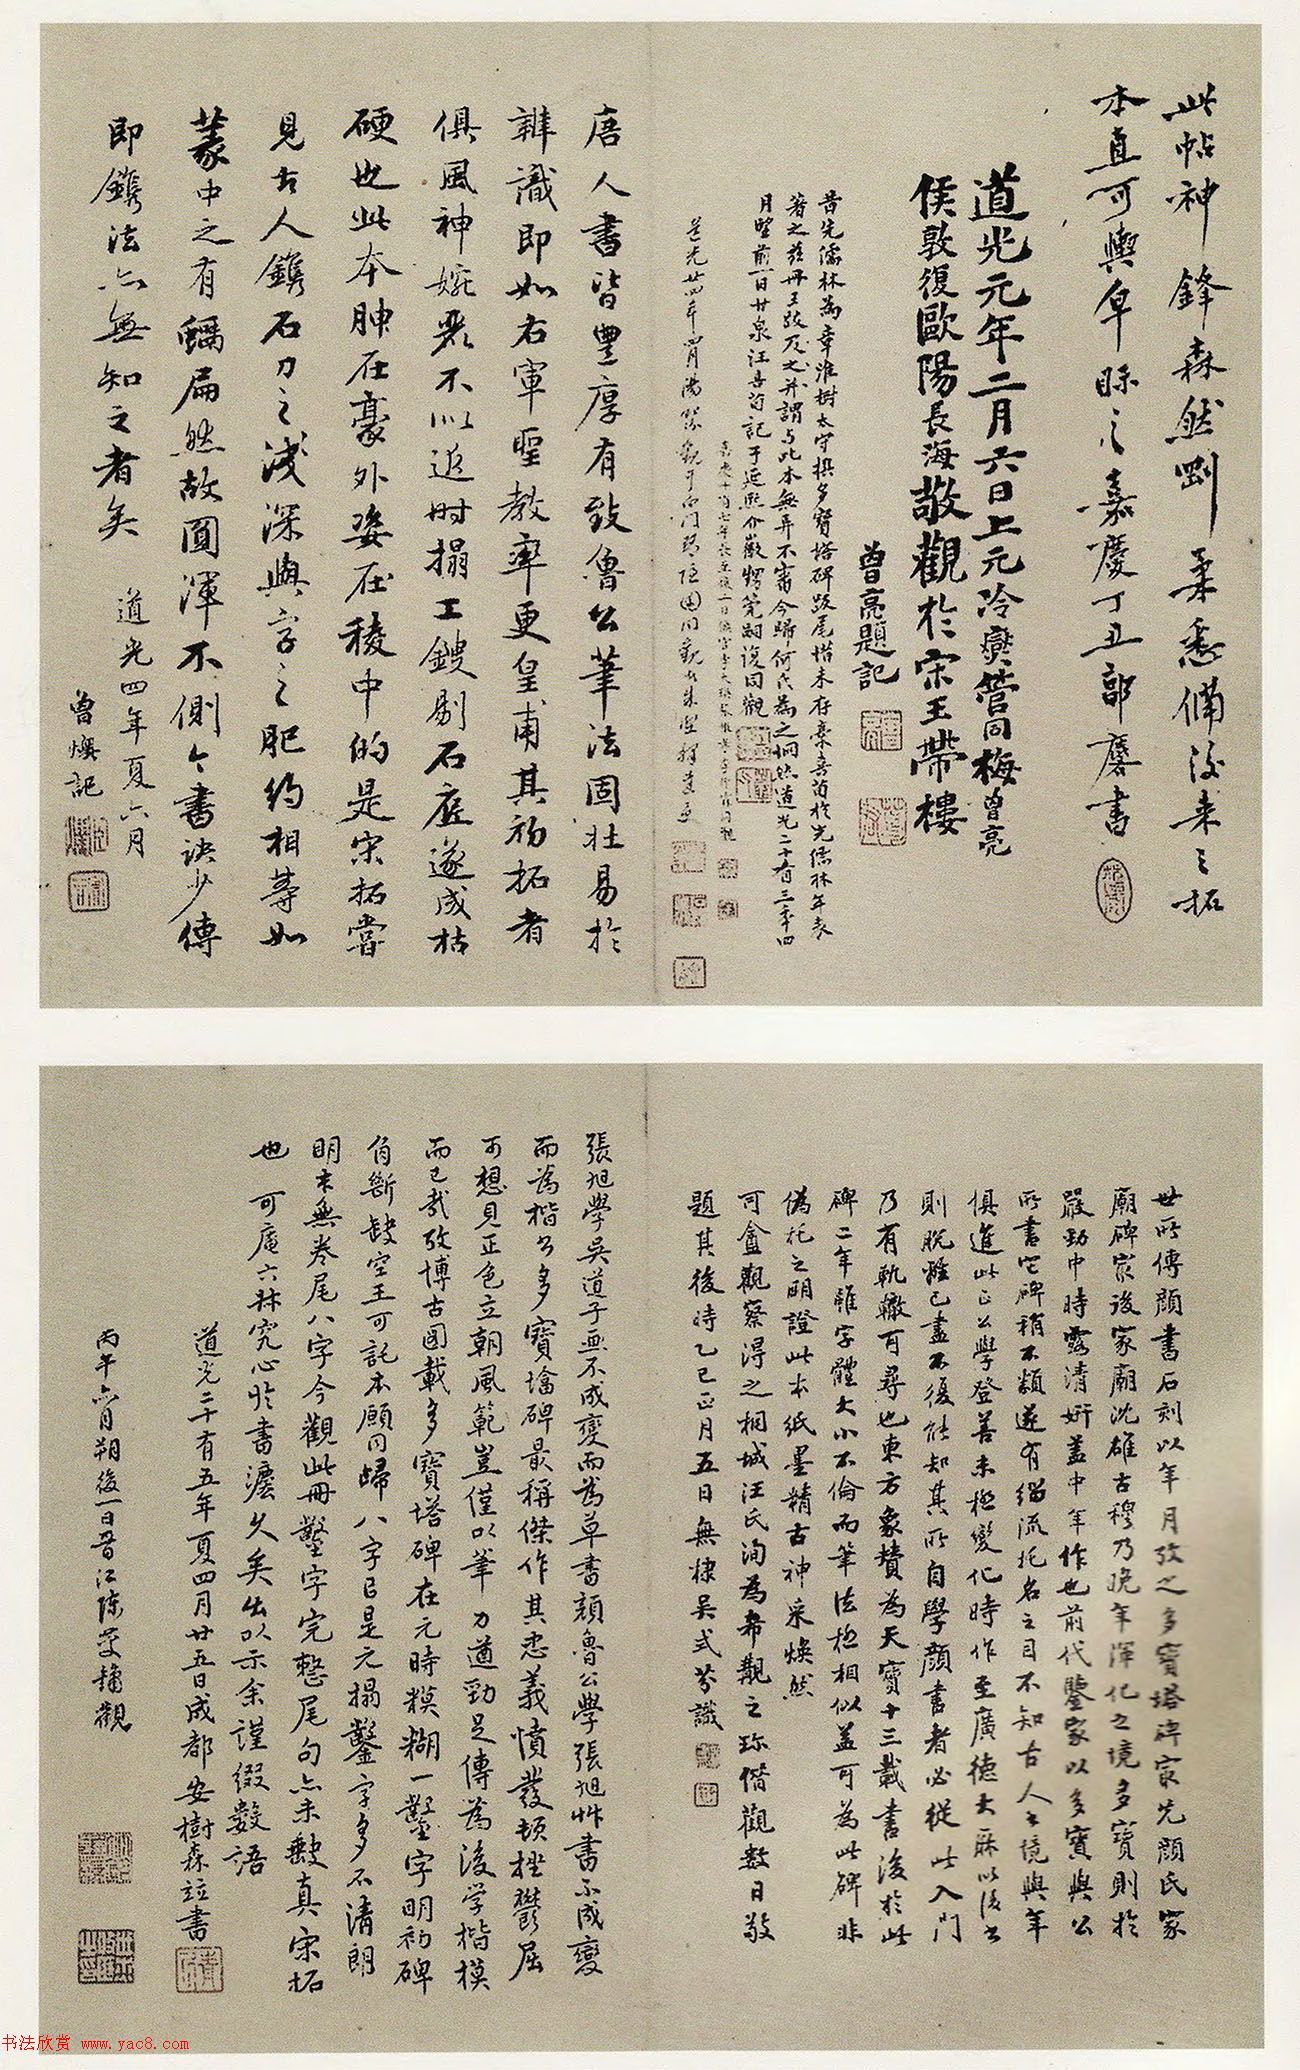 此帖神鋒森然剛柔悉備後來之拓
本直可輿皁眎之嘉慶丁丑部䴥書
道光元年二月六日上元冷爕管同梅曾亮
侯敦復歐陽長海敬觀於宋王帶樓
曾亮題記
昔先儒林為章淮樹太守撰多寶塔碑跋尾惜未存稾喜荀於先儒林年表
著之茲丹王跋及之并謂與此本無弄不甯今歸何氏為之惘然道光二十有三年四
月望前一日甘泉汪喜荀記子延熙介徽甥莞嗣復同觀
唐人書皆豐厚有致魯公筆法固壯易於
辨識即如右軍聖教率更皇甫其初拓者
俱風神婉麗不似近時搨工鎪剔石底遂成枯
硬也此本腴在豪外姿在稜中的是宋拓嘗
見古人鐫石刀之淺深與字之肥約相等如
篆中之有蠣扁然故圓渾不側今書訣少傳
即鐫法亦無知之者矣 道光四年夏六月
曾燠記
世所傳顏書石刻以年月攷之多寶塔碑冣先顏氏家
廟碑冣後家廟沈雄古穆乃晚年渾化之境多寶則於
嚴勁中時露清妍蓋中年作也前代鑒家以多寶與公
所書它碑稍不類遂有緇流托名之目不知古人書境與年
俱進此正公學登善未極變化時作至廣德大厤以後書
則脫雅已盡不復能知其所自學顏書者必從此入門
乃有軌轍可尋也東方象贊為天寶十三載書後於此
碑二年雖字體大小不倫而筆法極相似蓋可為此碑非
偽托之明證此本紙墨精古神采煥然
可龕觀察得之桐城汪氏洵為希覯之珎借觀數日敬
題其後時乙巳正月五日無棣吳式芬識
張旭學吳道子畫不成變而為草書顏魯公學張旭艸書不成變
而為楷公多寶墖碑最稱傑作其忠義憤發頓挫鬱屈
可想見正色立朝風範豈僅以筆力遒勁足傳為後學楷模
而已哉攷博古圖載多寶塔碑在元時糢糊一鑿字明初碑
角斷缺空王可託本願同歸八字已是元搨鑿字多不清朗
明末無卷尾八字今觀此冊鑿字完整尾句亦未缺真宋拓
也 可庵六林究心於書灋久矣出以示余謹綴數語
道光二十有五年夏四月廿五日成都安樹森竝書
丙午六月朔後一日晉江陳慶鏞觀
书法欣赏 www.yac8.com